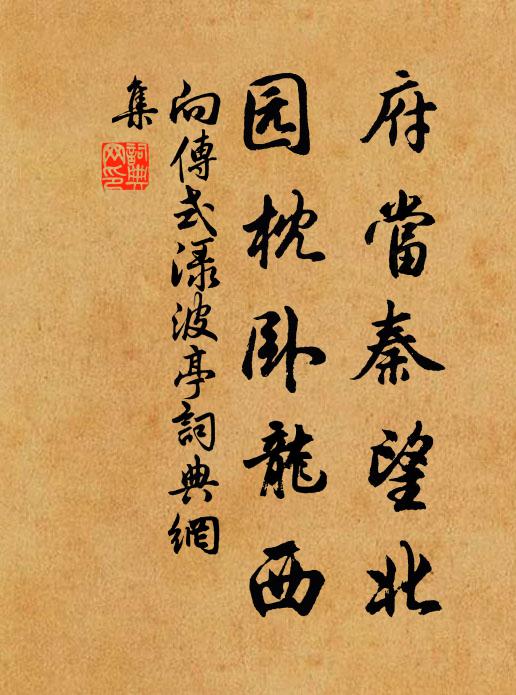 府當秦望北
园枕卧龍西
向傳式渌波亭詞典網
集
詞典網印